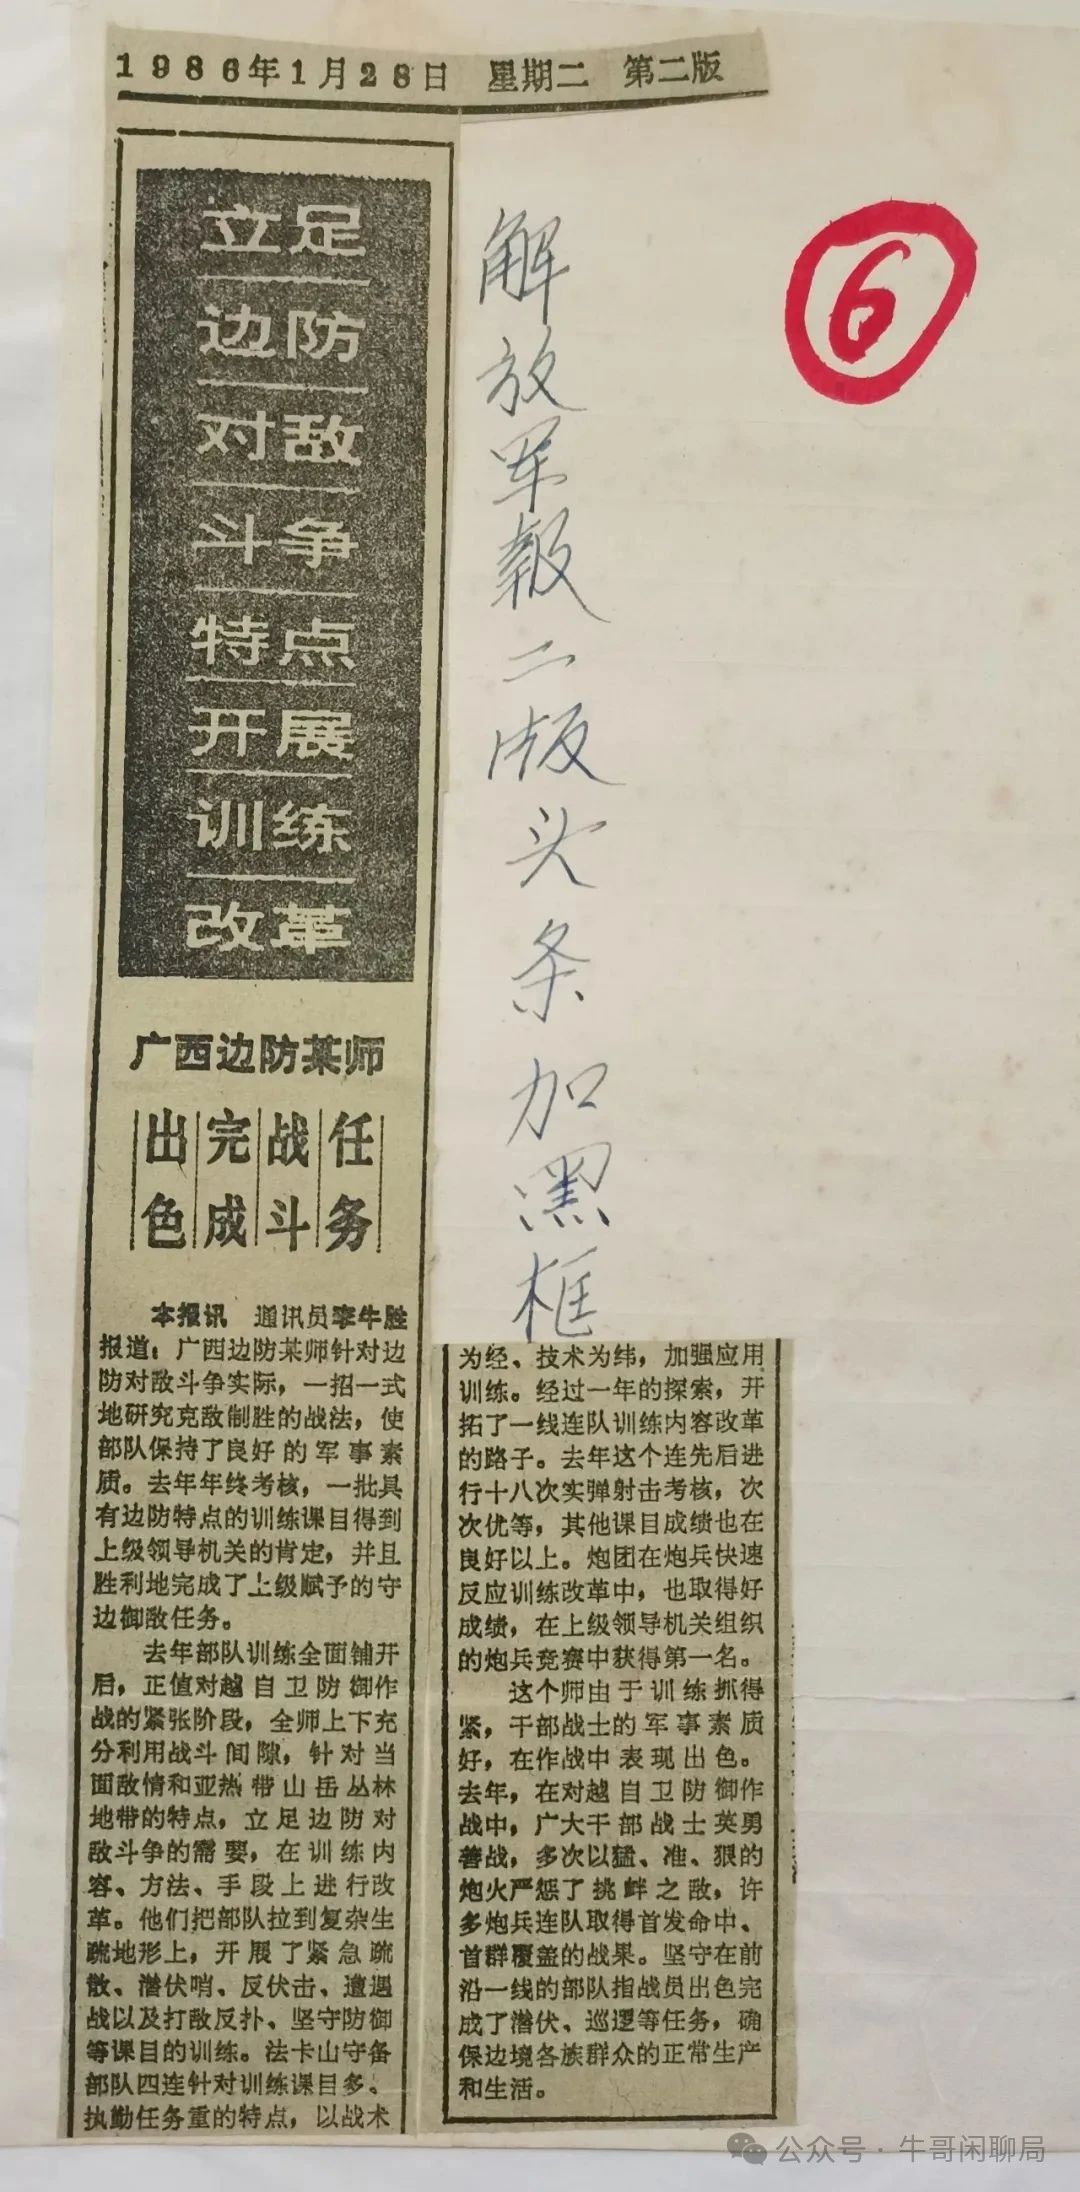 1986年1月28日 星期二 第二版
立足
边防
对敌
斗争
特点
开展
训练
改革
广西边防某师
出色完成战斗任务
本报讯 通讯员李牛胜
报道：广西边防某师针对边
防对敌斗争实际，一招一式
地研究克敌制胜的战法，使
部队保持了良好的军事素
质。去年年终考核，一批具
有边防特点的训练课目得到
上级领导机关的肯定，并且
胜利地完成了上级赋予的守
边御敌任务。
去年部队训练全面铺开
后，正值对越自卫防御作
战的紧张阶段，全师上下充
分利用战斗间隙，针对当
面敌情和亚热带山岳丛林
地带的特点，立足边防对
敌斗争的需要，在训练内
容、方法、手段上进行改
革。他们把部队拉到复杂生
疏地形上，开展了紧急疏
散、潜伏哨、反伏击、遭遇
战以及打敌反扑、坚守防御
等课目的训练。法卡山守备
部队四连针对训练课目多、
执勤任务重的特点，以战术
为经、技术为纬，加强应用
训练。经过一年的探索，开
拓了一线连队训练内容改革
的路子。去年这个连先后进
行十八次实弹射击考核，次
次优等，其他课目成绩也在
良好以上。炮团在炮兵快速
反应训练改革中，也取得好
成绩，在上级领导机关组织
的炮兵竞赛中获得第一名。
这个师由于训练抓得
紧，干部战士的军事素质
好，在作战中表现出色。
去年，在对越自卫防御作
战中，广大干部战士英勇
善战，多次以猛、准、狠的
炮火严惩了挑衅之敌，许
多炮兵连队取得首发命中、
首群覆盖的战果。坚守在前
沿一线的部队指战员出色完
成了潜伏、巡逻等任务，确
保边境各族群众的正常生产
和生活。
解放军報二版头条加黑框
6
公众号·牛哥闲聊局